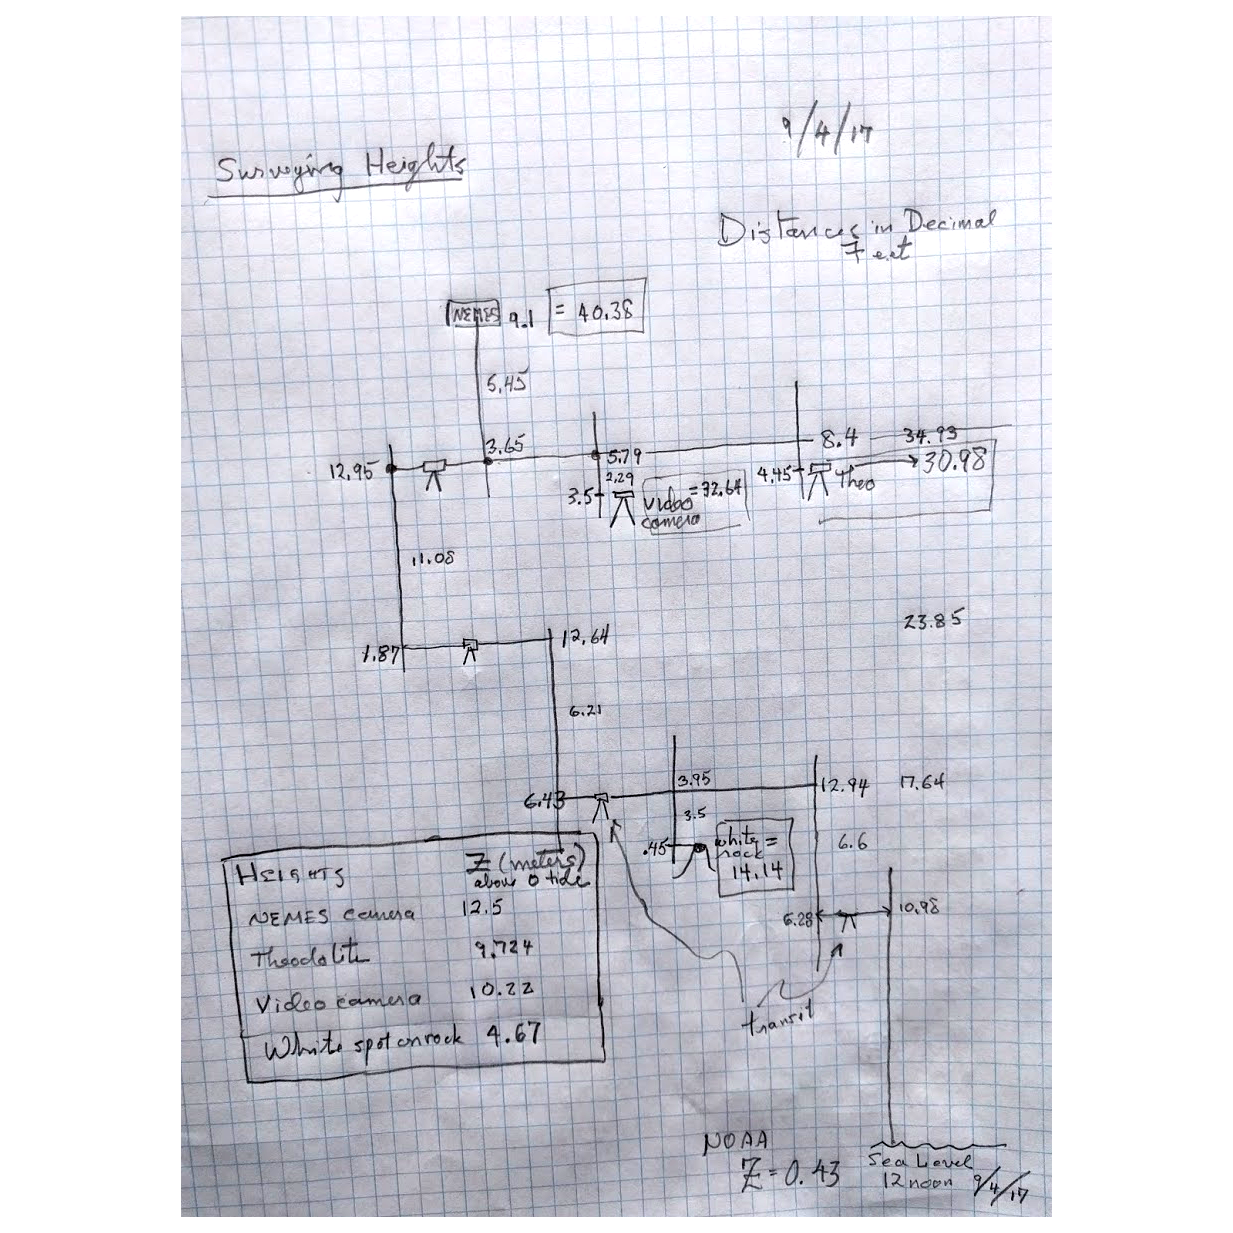 9/4/17
Surveying Heights
Distances in Decimal
Feet
NEMES 9.1 = 40.38
5.45
12.95 3.65 5.79 8.4 34.93
2.29 4.45 Theo 30.98
3.5 Video = 32.64
camera
11.08
23.85
1.87 12.64
6.21
6.43 3.95 12.94 17.64
3.5
.45 white =
rock
14.14
6.6
6.28 10.98
HEIGHTS Z (meters)
above 0 tide
NEMES camera 12.5
Theodolite 9.724
Video camera 10.22
White spot on rock 4.67
transit
NOAA
Z = 0.43
Sea Level
12 noon 9/4/17